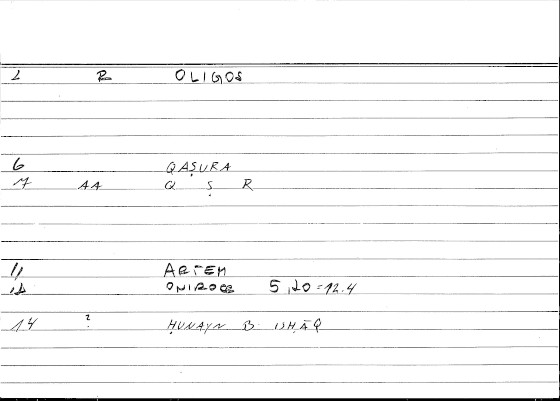 1 R OLIGOS
6 QAṢURA
7 AA Q Ṣ R
11 ARTEM
12 ONIROCR 5,20=12.4
14 ? ḤUNAYN B. ISḤĀQ